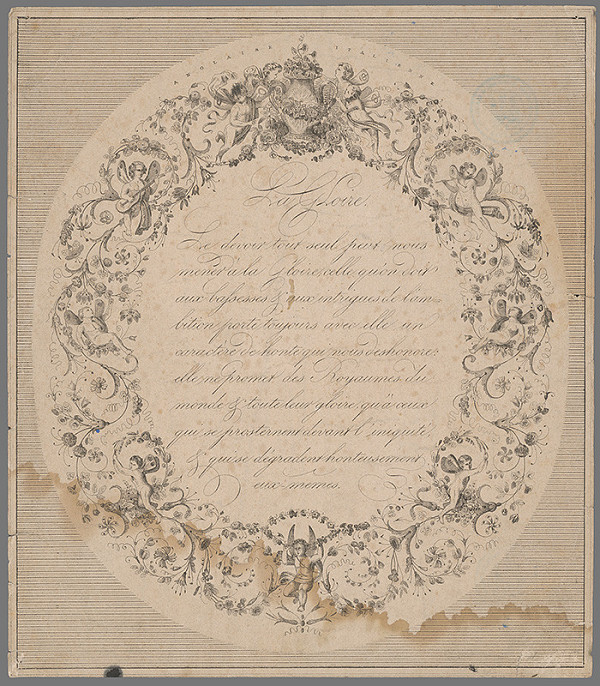 La Gloire.
Le devoir tout seul peut nous
mener à la Gloire, celle qu'on doit
aux bassesses & aux intrigues de l'am=
bition porte toujours avec elle un
caractère de honte qui nous deshonore;
elle ne promet des Royaumes du
monde & toute leur gloire, qu'à ceux
qui se prosternent devant l'iniquité
& qui se dégradent honteusement
eux-memes.